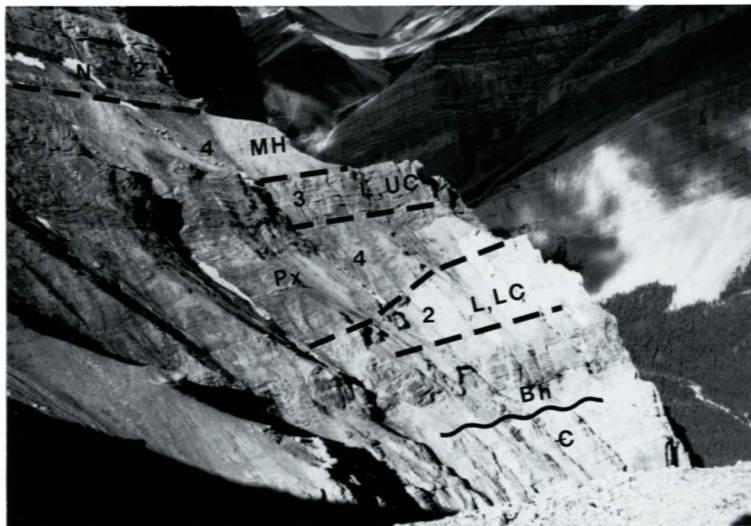 N 2
4 MH
3 L,UC
Px 4
2 L,LC
Bh
Є